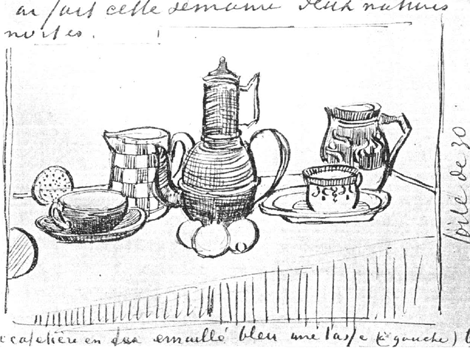 ai fait cette semaine deux natures
mortes.
toile de 30
cafetière en émaillé bleu une tasse (à gauche)